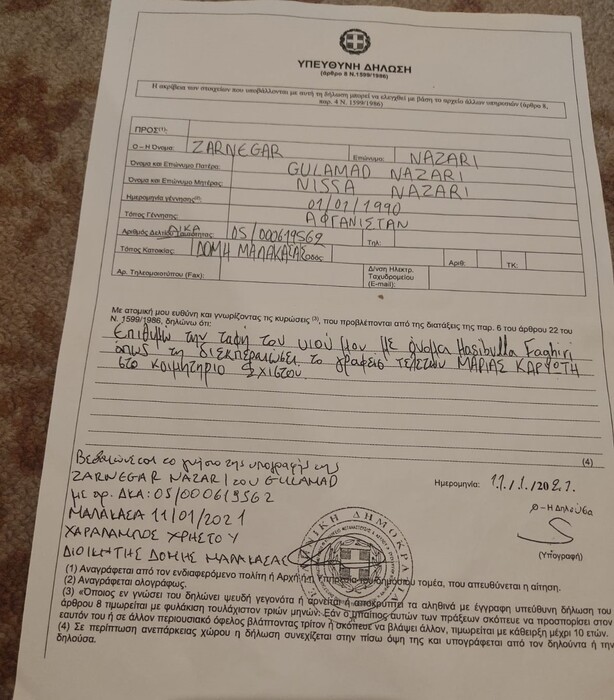 ΥΠΕΥΘΥΝΗ ΔΗΛΩΣΗ
(άρθρο 8 Ν.1599/1986)
Η ακρίβεια των στοιχείων που υποβάλλονται με αυτή τη δήλωση μπορεί να ελεγχθεί με βάση το αρχείο άλλων υπηρεσιών (άρθρο 8,
παρ. 4 Ν. 1599/1986)
ΠΡΟΣ(1):
Ο – Η Όνομα: ZARNEGAR Επώνυμο: NAZARI
Όνομα και Επώνυμο Πατέρα: GULAMAD NAZARI
Όνομα και Επώνυμο Μητέρας: NISSA NAZARI
Ημερομηνία γέννησης(2): 01/01/1990
Τόπος Γέννησης: ΑΦΓΑΝΙΣΤΑΝ
Αριθμός Δελτίου Ταυτότητας: ΔΙΚΑ 05/000619562 Τηλ:
Τόπος Κατοικίας: ΔΟΜΗ ΜΑΛΑΚΑΣΑΣ Οδός: Αριθ: ΤΚ:
Αρ. Τηλεομοιοτύπου (Fax): Δ/νση Ηλεκτρ.
Ταχυδρομείου
(Ε-mail):
Με ατομική μου ευθύνη και γνωρίζοντας τις κυρώσεις (3), που προβλέπονται από της διατάξεις της παρ. 6 του άρθρου 22 του
Ν. 1599/1986, δηλώνω ότι:
Επιθυμώ την ταφή του υιού μου με όνομα Hasibulla Faghiri
όπως τη διεκπεραιώσει το γραφείο τελετών ΜΑΡΙΑΣ ΚΑΡΨΩΤΗ
στο κοιμητήριο Σχιστού.
(4)
Βεβαιώνεται το γνήσιο της υπογραφής της
ZARNEGAR NAZARI του GULAMAD
με αρ. ΔΚΑ: 05/000619562
ΜΑΛΑΚΑΣΑ 11/01/2021
ΧΑΡΑΛΑΜΠΟΣ ΧΡΗΣΤΟΥ
ΔΙΟΙΚΗΤΗΣ ΔΟΜΗΣ ΜΑΛΑΚΑΣΑΣ
Ημερομηνία: 11/1/2021
Ο – Η Δηλούσα
(Υπογραφή)
(1) Αναγράφεται από τον ενδιαφερόμενο πολίτη ή Αρχή ή η Υπηρεσία του δημόσιου τομέα, που απευθύνεται η αίτηση.
(2) Αναγράφεται ολογράφως.
(3) «Όποιος εν γνώσει του δηλώνει ψευδή γεγονότα ή αρνείται ή αποκρύπτει τα αληθινά με έγγραφη υπεύθυνη δήλωση του
άρθρου 8 τιμωρείται με φυλάκιση τουλάχιστον τριών μηνών. Εάν ο υπαίτιος αυτών των πράξεων σκόπευε να προσπορίσει στον
εαυτόν του ή σε άλλον περιουσιακό όφελος βλάπτοντας τρίτον ή σκόπευε να βλάψει άλλον, τιμωρείται με κάθειρξη μέχρι 10 ετών.
(4) Σε περίπτωση ανεπάρκειας χώρου η δήλωση συνεχίζεται στην πίσω όψη της και υπογράφεται από τον δηλούντα ή την
δηλούσα.